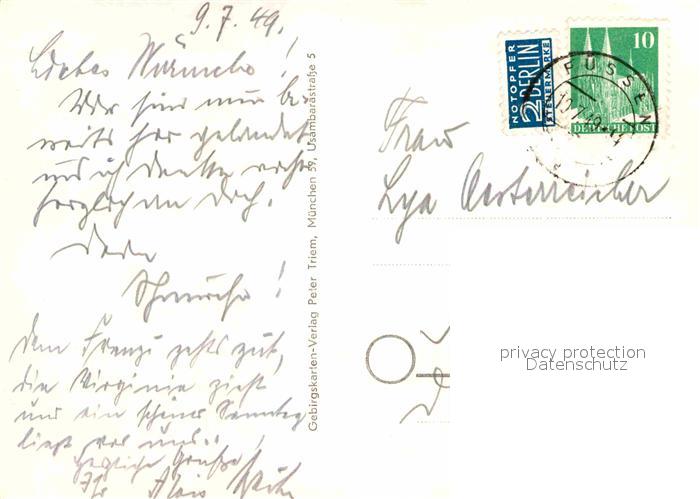 9.7.49.
Liebes !
Wir sind nun be-
reits hier gelandet
und ich denke recht
herzlich an Dich.
Dein
!
Dem Franzi gehts gut,
die Virginia zieht
und ein schöner Sonntag
liegt vor uns.
Herzliche Grüße!
Ihr Alois
Gebirgskarten-Verlag Peter Triem, München 59, Usambarastraße 5
NOTOPFER
2 BERLIN
STEUERMARKE
10
DEUTSCHE POST
FÜSSEN
Frau
Lya Oesterreicher
privacy protection
Datenschutz